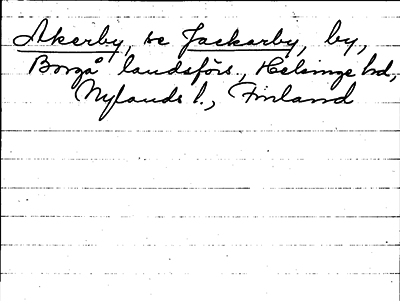 Åkerby, se Jackarby, by,
Borgå landsförs., Helsinge hd,
Nylands l., Finland